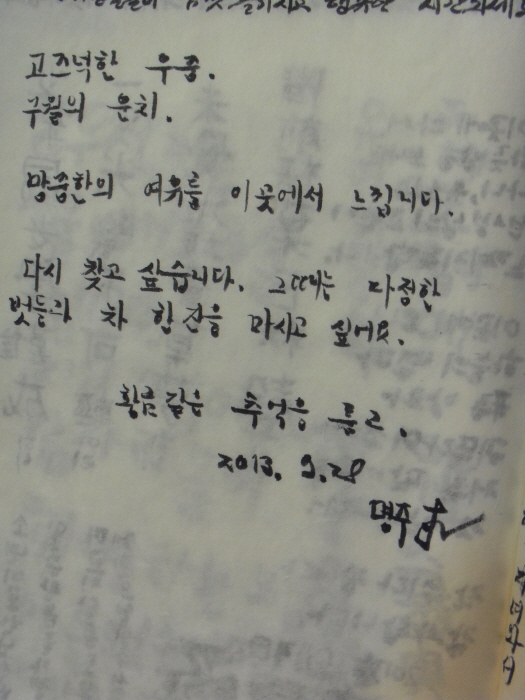 고즈넉한 우중.
9월의 운치.
망중한의 여유를 이곳에서 느낍니다.
다시 찾고 싶습니다. 그때는 다정한
벗들과 차 한잔을 마시고 싶어요.
황금같은 추억을 품고.
2013. 9. 28
명주